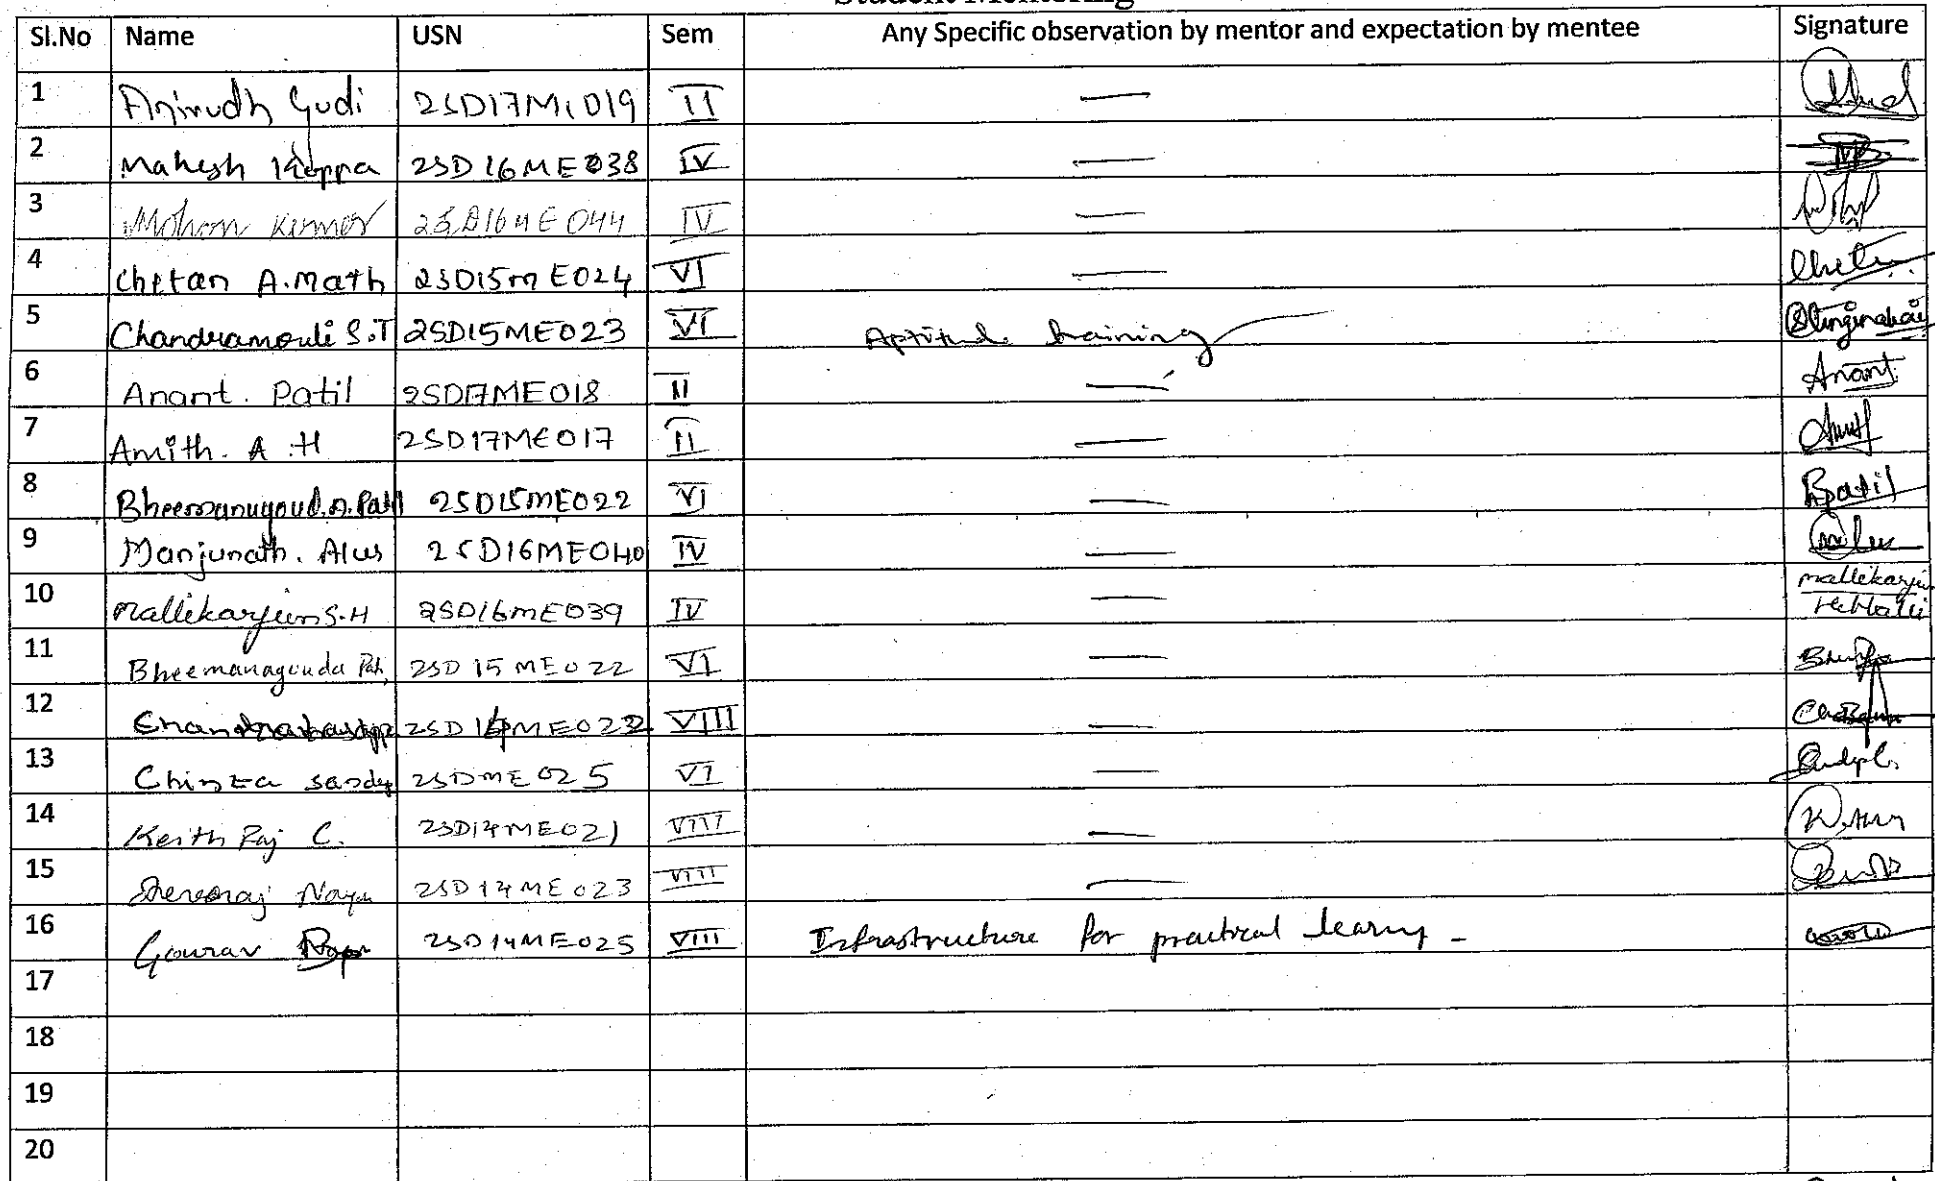 Student Mentoring
Sl.No Name USN Sem Any Specific observation by mentor and expectation by mentee Signature
1 Anirudh Gudi 2SD17ME019 II —
2 Mahesh Koppa 2SD16ME038 IV —
3 Mohan Kumar 2SD16ME044 IV —
4 Chetan A.Math 2SD15mE024 VI — Chetan
5 Chandramouli S.T 2SD15ME023 VI Aptitude training
6 Anant. Patil 2SD17ME018 II — Anant
7 Amith. A.H 2SD17ME017 II —
8 Bheemanugoud.A.Patil 2SD15mE022 VI — BPatil
9 Manjunath. Alur 2SD16ME040 IV —
10 Mallikarjun S.H 2SD16mE039 IV — mallikarjun
11 Bheemanagouda Pati 2SD15ME022 VI —
12 Chandrabasapp 2SD14ME022 VIII —
13 sandip 2SDME025 VI —
14 Keith Raj C. 2SD14ME021 VIII —
15 2SD14ME023 VIII —
16 Gourav 2SD14ME025 VIII Infrastructure for practical learng -
17
18
19
20